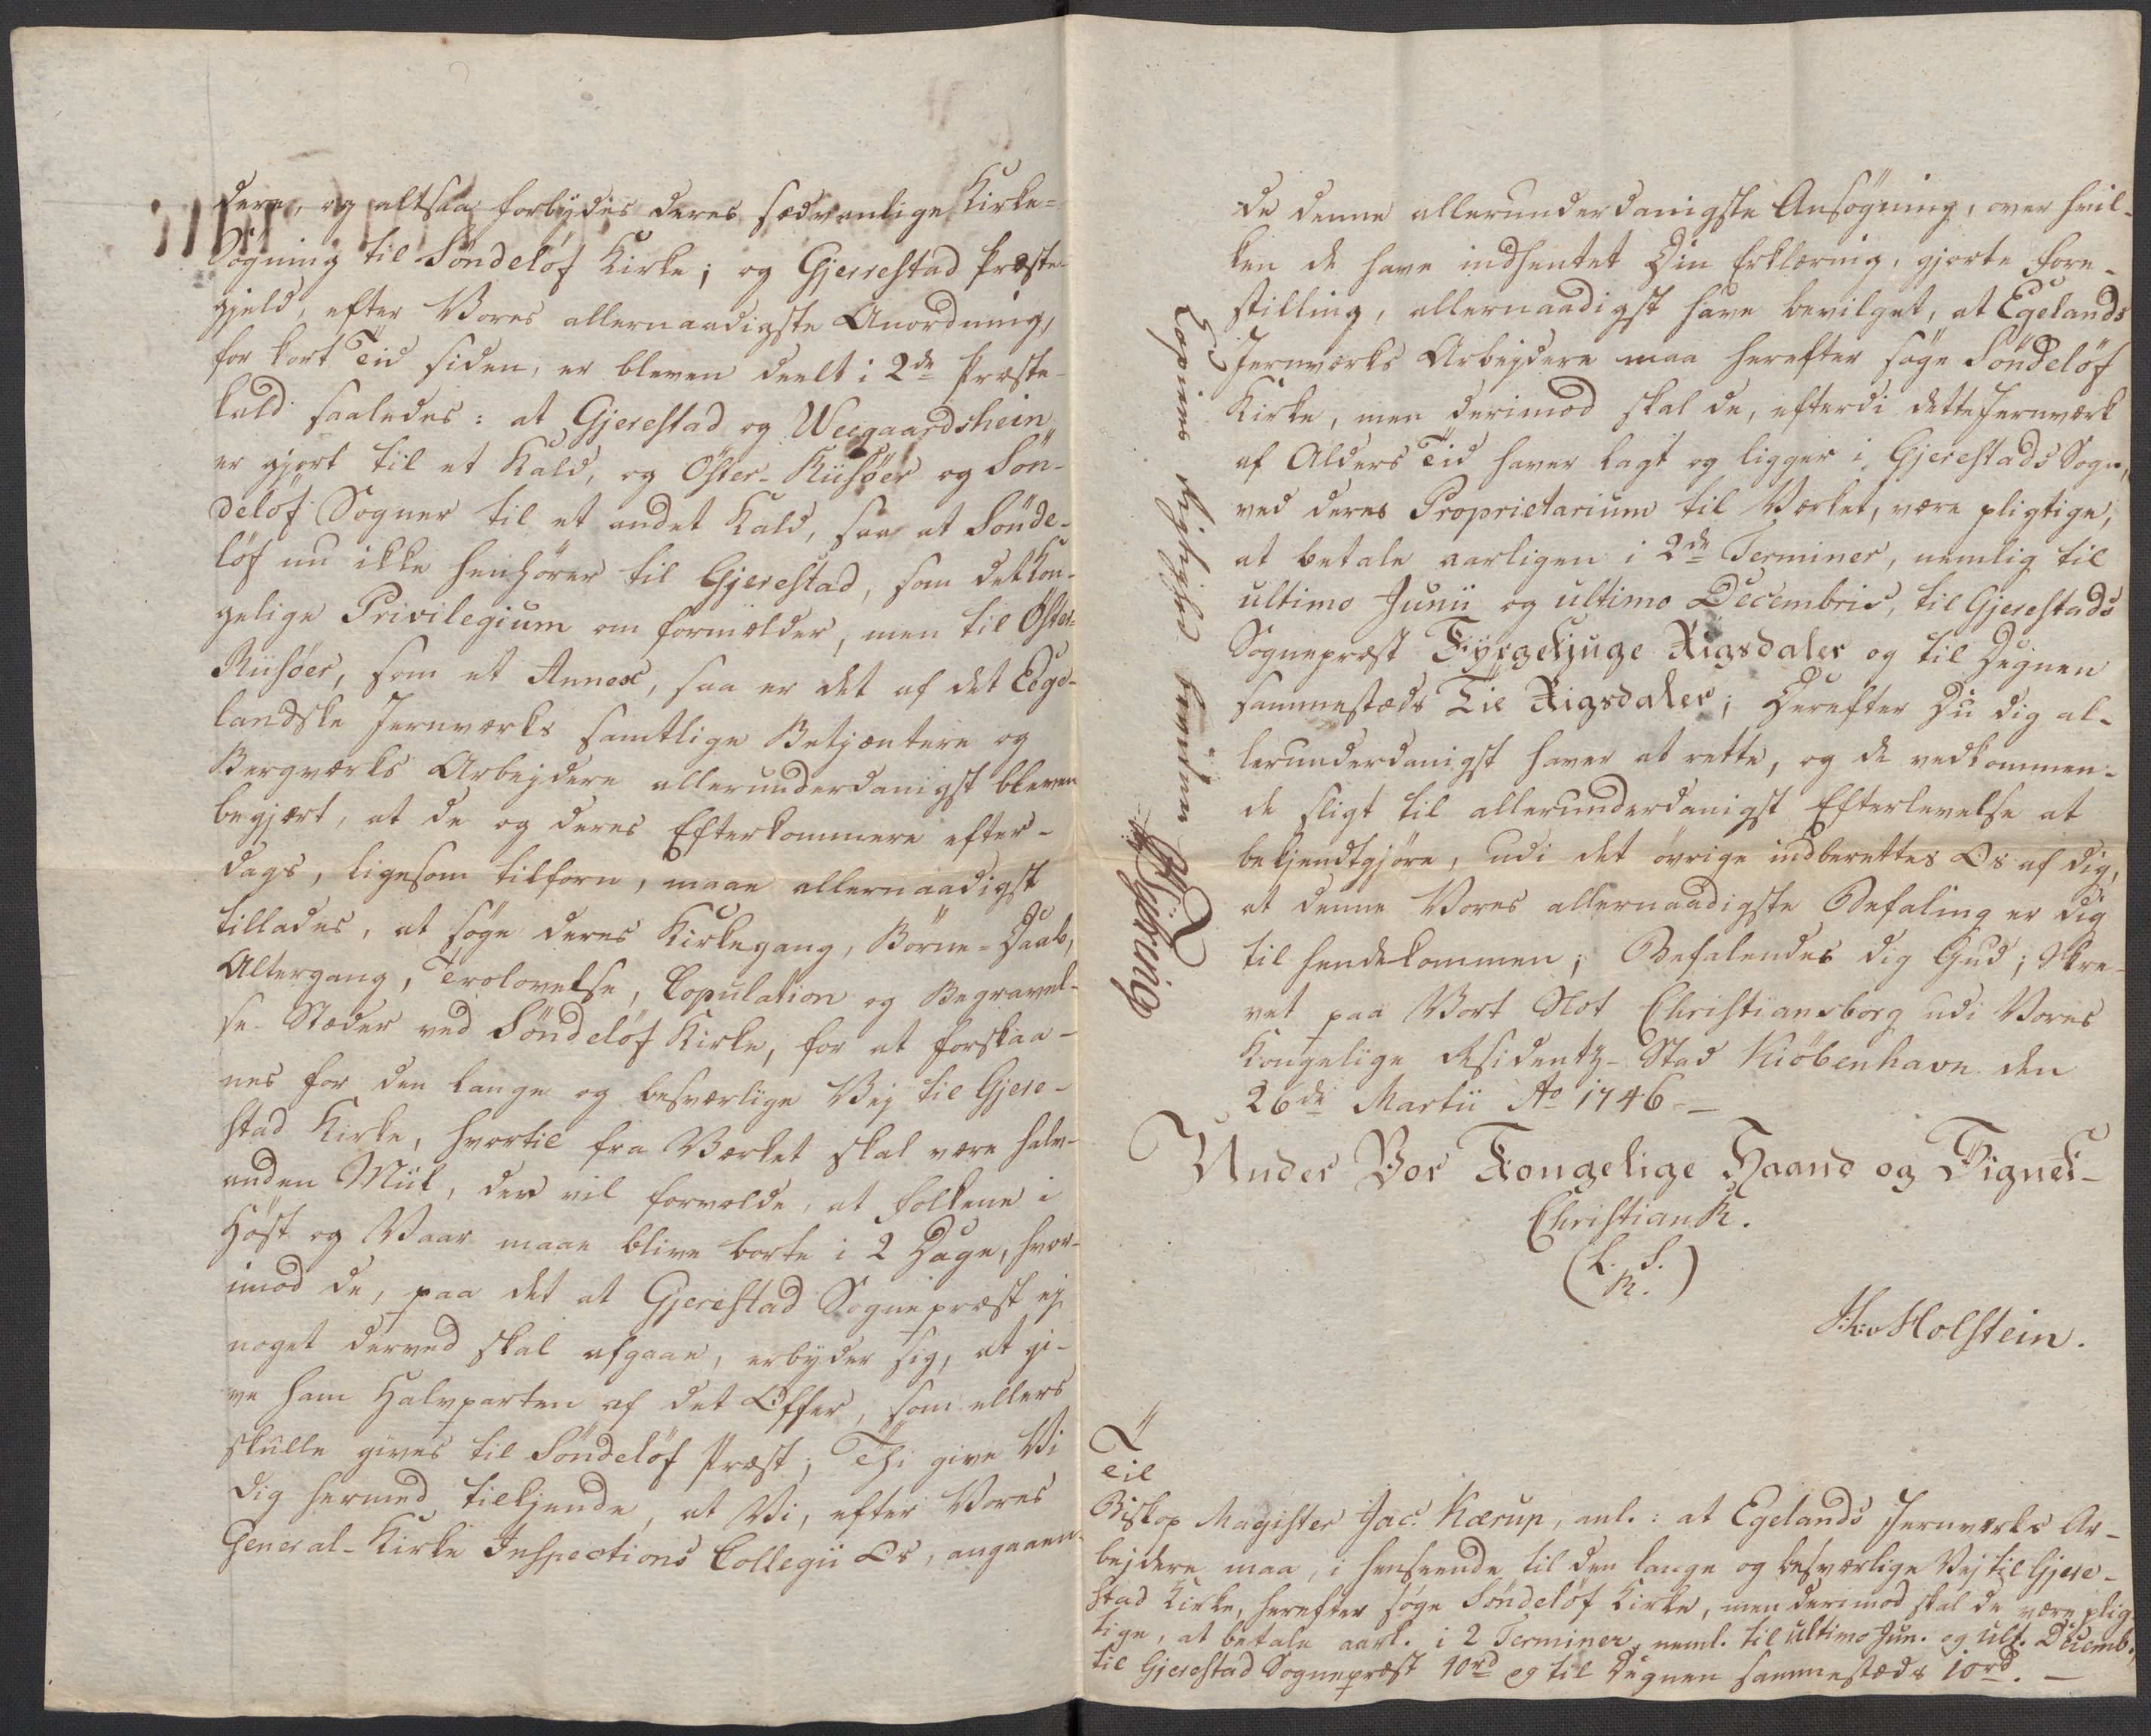 dere, og altsaa forbydes deres sædvanlige Kirke-
Søgning til Söndelöf Kirke; og Gjerrestad Præste-
gjeld, efter Vores allernaadigste Anordning,
for kort Tid siden, er bleven deelt i 2de Præste-
kald saaledes: at Gjerestad og Weegaardshein
er gjort til et Kald, og Öster-Riisöer og Sön-
delöf Sogner til et andet Kald, saa at Sönde-
löf nu ikke henhörer til Gjerestad, som det Kon-
gelige Privilegium om formælder, men til Öster-
Riisöer, som et Annex, saa er det af det Eege-
landske Jernværks samtlige Betjentere og
Bergværks Arbejdere allerunderdanigst bleven
begjært, at de og deres Efterkommere efter-
dags, ligesom tilforn, maae allernaadigst
tillades, at søge deres Kirkegang, Börne-Daab,
Altergang, Trolovelse, Copulation og Begravel-
se-Stæder ved Söndelöf Kirke, for at forskaa-
nes for den lange og besværlige Vej til Gjere-
stad Kirke, hvortil fra Værket skal være halv-
anden Miil, der vil forvolde, at Folkene i
Høst og Vaar maae blive borte i 2 Dage, hvor-
imod de, paa det at Gjerestad Sognepræst ej
noget derved skal afgaae, erbyder sig, at gi-
ve ham Halvparten af det Offer, som ellers
skulle gives til Söndelöf Præst; Thi give Vi
Dig hermed tilkjende, at Vi, efter Vores
General-Kirke Inspections Collegii Os, angaaen-
de denne allerunderdanigste Ansøgning, over hvil-
ken de have indhentet Din Erklæring, gjorte Fore-
stilling, allernaadigst have bevilget, at Egelands
Jernværks Arbejdere maa herefter søge Söndelöf
Kirke, men derimod skal de, efterdi dette Jernværk
af Alders Tid haver lagt og ligger i Gjerestads Sogn,
ved deres Proprietarium til Værket, være pligtige,
at betale aarligen i 2de Terminer, nemlig til
ultimo Junii og ultimo Decembris, til Gjerestads
Sognepræst Fyrgetyuge Rigsdaler og til Degnen
sammestæds Tie Rigsdaler; Derefter Du dig al-
lerunderdanigst haver at rette, og de vedkommen-
de sligt til allerunderdanigst Efterlevelse at
bekjendtgjöre, udi det övrige indberettes Os af dig,
at denne Vores allernaadigste Befaling er dig
til hændekommen; Befalendes dig Gud; Skre-
vet paa Vort Slot Christiansborg udi Vores
Kongelige Residentz-Stad Kiöbenhavn den
26de Martii Ao 1746
Under Vor Kongelige Haand og Signet
Christian R.
(L. S.
R.)
J.L.v Holstein.
Til
Biskop Magister Jac. Kærup, anl.: at Egelands Jernværks Ar-
bejdere maa, i henseende til den lange og besværlige Vej til Gjere-
stad Kirke, herefter søge Söndelöf Kirke, men derimod skal de være plig-
tige, at betale aarl. i 2 Terminer, neml. til ultimo Jun. og ult. Decemb.,
til Gjerestad Sognepræst 40rd og til Degnen sammestæds 10rd.
Copiens Rigtighed bevidner